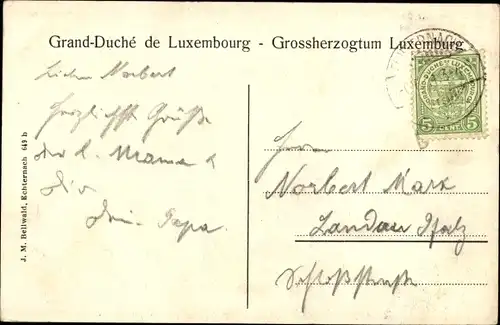 Grand-Duché de Luxembourg - Grossherzogtum Luxemburg
Lieber Norbert
Herzlichste Grüße
der l. Mama &
Dir
Dein Papa.
Herrn
Norbert Marx
Landau Pfalz
Schloßstraße
J. M. Bellwald, Echternach 643 b
ECHTERNACH
GRAND-DUCHÉ DE LUXEMBOURG
5 CENT. 5